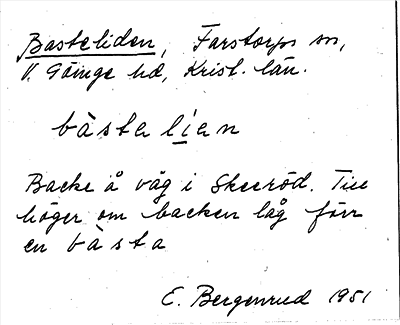 Basteliden, Farstorps sn,
V. Göinge hd, Krist. län.
bàsta lían
Backe å väg i Skeeröd. Till
höger om backen låg förr
en bàsta
E. Bergenrud 1951